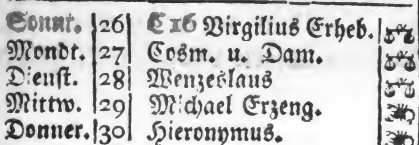 Sonnt. 26 C 16 Virgilius Erheb.
Mondt. 27 Cosm. u. Dam.
Dienst. 28 Wenzeslaus
Mittw. 29 Michael Erzeng.
Donner. 30 Hieronymus.